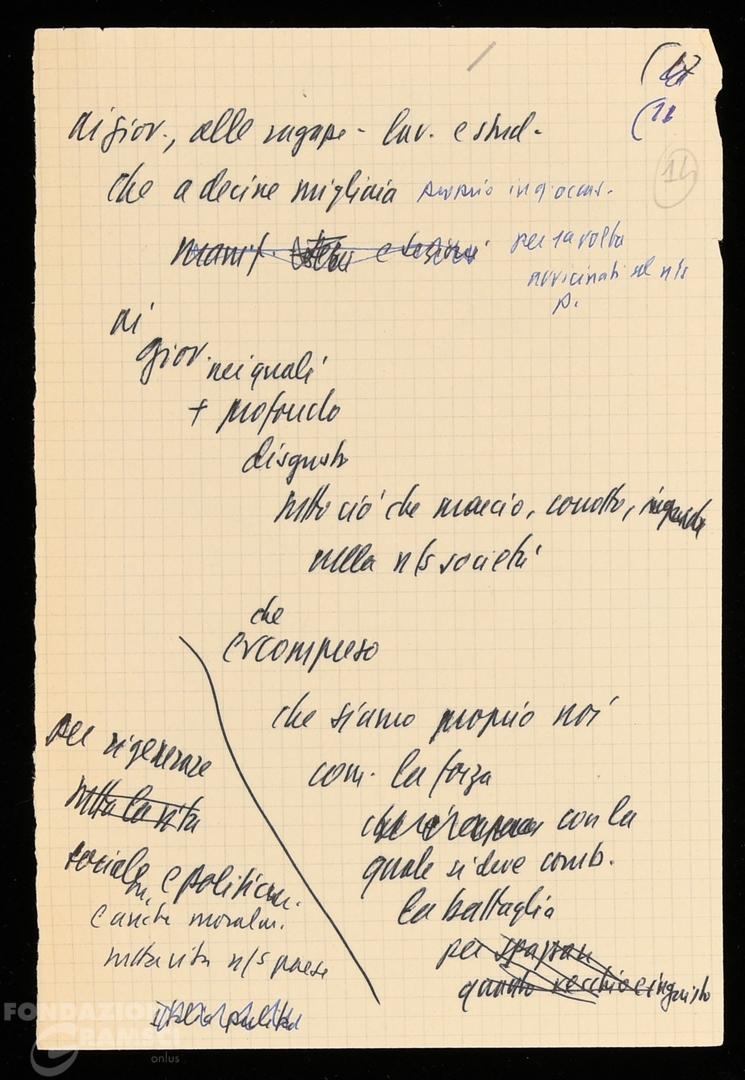 (17
(16
14
ai giov., alle ragazze - lav. e stud.
che a decine migliaia
per la volta
avvicinati al n/s
p.
manif.
ai
giov. nei quali
+ profondo
disgusto
tutto ciò che marcio, corrotto, ingiusto
nella n/s società
che
compreso
che siamo proprio noi
com. la forza
con la
quale si deve comb.
la battaglia
per spazzare
quanto vecchio e ingiusto
per rigenerare
tutta la vita
social e politicam.
e anche moralm.
tutta vita n/s paese
FONDAZIONE
GRAMSCI
onlus